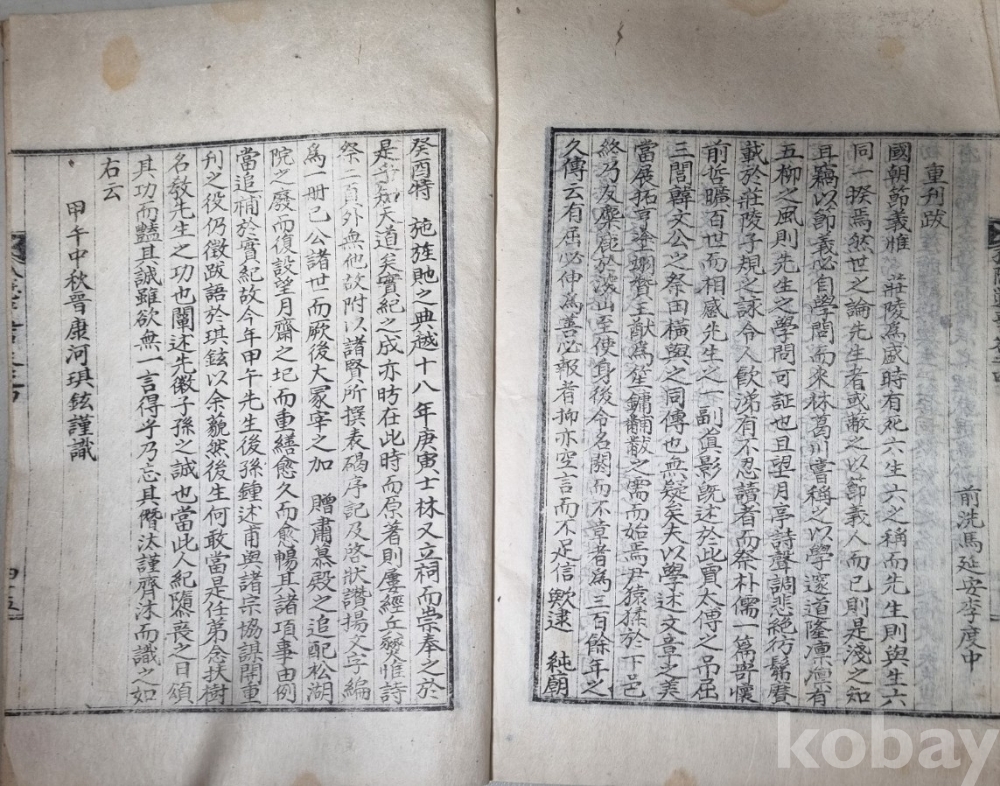 重刊跋
前洗馬延安李度中
國朝節義惟 莊陵爲盛時有死六生六之稱而先生則與生六
同一揆焉然世之論先生者或蔽之以節義人而已則是淺之知
且竊以節義必自學問而來林葛川嘗稱之以學邃道隆凛凛有
五柳之風則先生之學問可証也且望月亭詩聲調悲絶彷髴賡
載於莊陵子規之詠令人飮涕有不忍讀者而祭朴儒一篇辭懷
前哲曠百世而相感先生之一副眞影旣述於此賈太傅之吊屈
三閭韓文公之祭田橫與之同傳也無疑矣夫以學述文章之美
當展拓亨㦿翊贊王猷爲笙鏞黼黻之需而始焉尹猿猱於下邑
終乃友麋鹿於深山至使身後令名闕而不章者爲三百餘年之
久傳云有屈必伸爲善必報者抑亦空言而不足信歟逮 純廟
癸酉特 施旌貤之典越十八年庚寅士林又立祠而崇奉之於
是乎知天道矣實紀之成亦昉在此時而原著則屢經丘燹惟詩
祭二頁外無他故附以諸賢所撰表碣序記及啓狀讚揚文字編
爲一冊已公諸世而厥後大冢宰之加 贈肅慕殿之追配松湖
院之廢而復設望月齋之圮而重繕愈久而愈暢其諸項事由例
當追補於實紀故今年甲午先生後孫鍾述甫與諸宗協謀開重
刊之役仍徵跋語於琪鉉以余藐然後生何敢當是任第念扶樹
名敎先生之功也闡述先徽子孫之誠也當此人紀隳喪之日頌
其功而豔其誠雖欲無一言得乎乃忘其僭汰謹齊沐而識之如
右云
甲午中秋晉康河琪鉉謹識
kobay